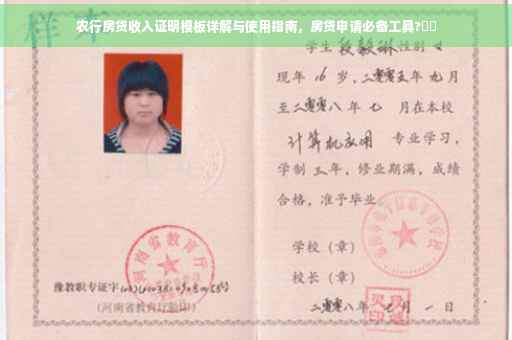 农行房贷收入证明模板详解与使用指南，房贷申请必备工具?
样本
学生 段毅琳 性别 女
现年 16 岁，二零零五年 九月
至二零零八年 七 月在本校
计算机应用 专业学习，
学制 三年，修业期满，成绩
合格，准予毕业
学校（章）
校长（章）
二零零八年 七月 一日
河南省教育厅
豫教职专证字
号
（河南省教育厅验印）